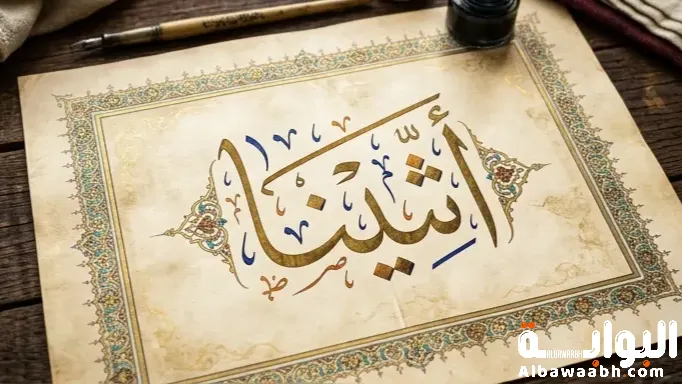 أثينا
البوابة
ALBAWAABH
Albawaabh.com